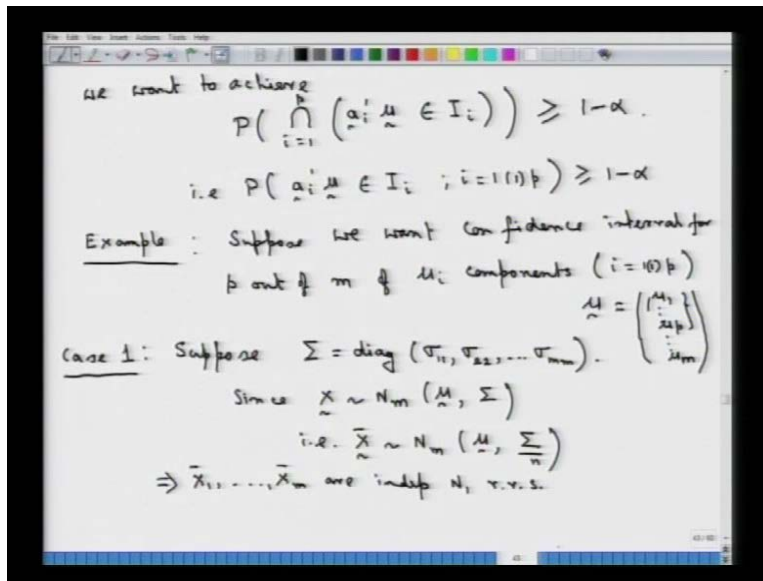 File Edit View Insert Actions Tools Help
we want to achieve
P( ⋂_{i=1}^{p} (a_i' μ ∈ I_i) ) ≥ 1-α.
i.e P( a_i' μ ∈ I_i ; i=1(1)p ) ≥ 1-α
Example : Suppose we want confidence interval for
p out of m of μ_i components (i=1(1)p)
μ = (μ_1 ⋮ μ_p ⋮ μ_m)
Case 1: Suppose Σ = diag (σ_11, σ_22, ... σ_mm).
Since X ~ N_m (μ, Σ)
i.e. X̄ ~ N_m (μ, Σ/n)
⇒ X̄_1, ..., X̄_m are indep N_1 r.v.s.
43/60
43